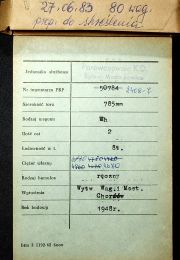 27.06.83 80 wag.
prop. do skreślenia
Parowozownia K.D.
Jednostka służbowa
Nr inwentarza PKP 50784 2408-7
Szerokość toru 785mm
Rodzaj wagonu Wh
Ilość osi 2
Ładowność w t. 8t.
Ciężar własny
Rodzaj hamulca ręczny
Wytwórnia Wytw. Wag. i Most.
Chorzów
Rok budowy 1948r.